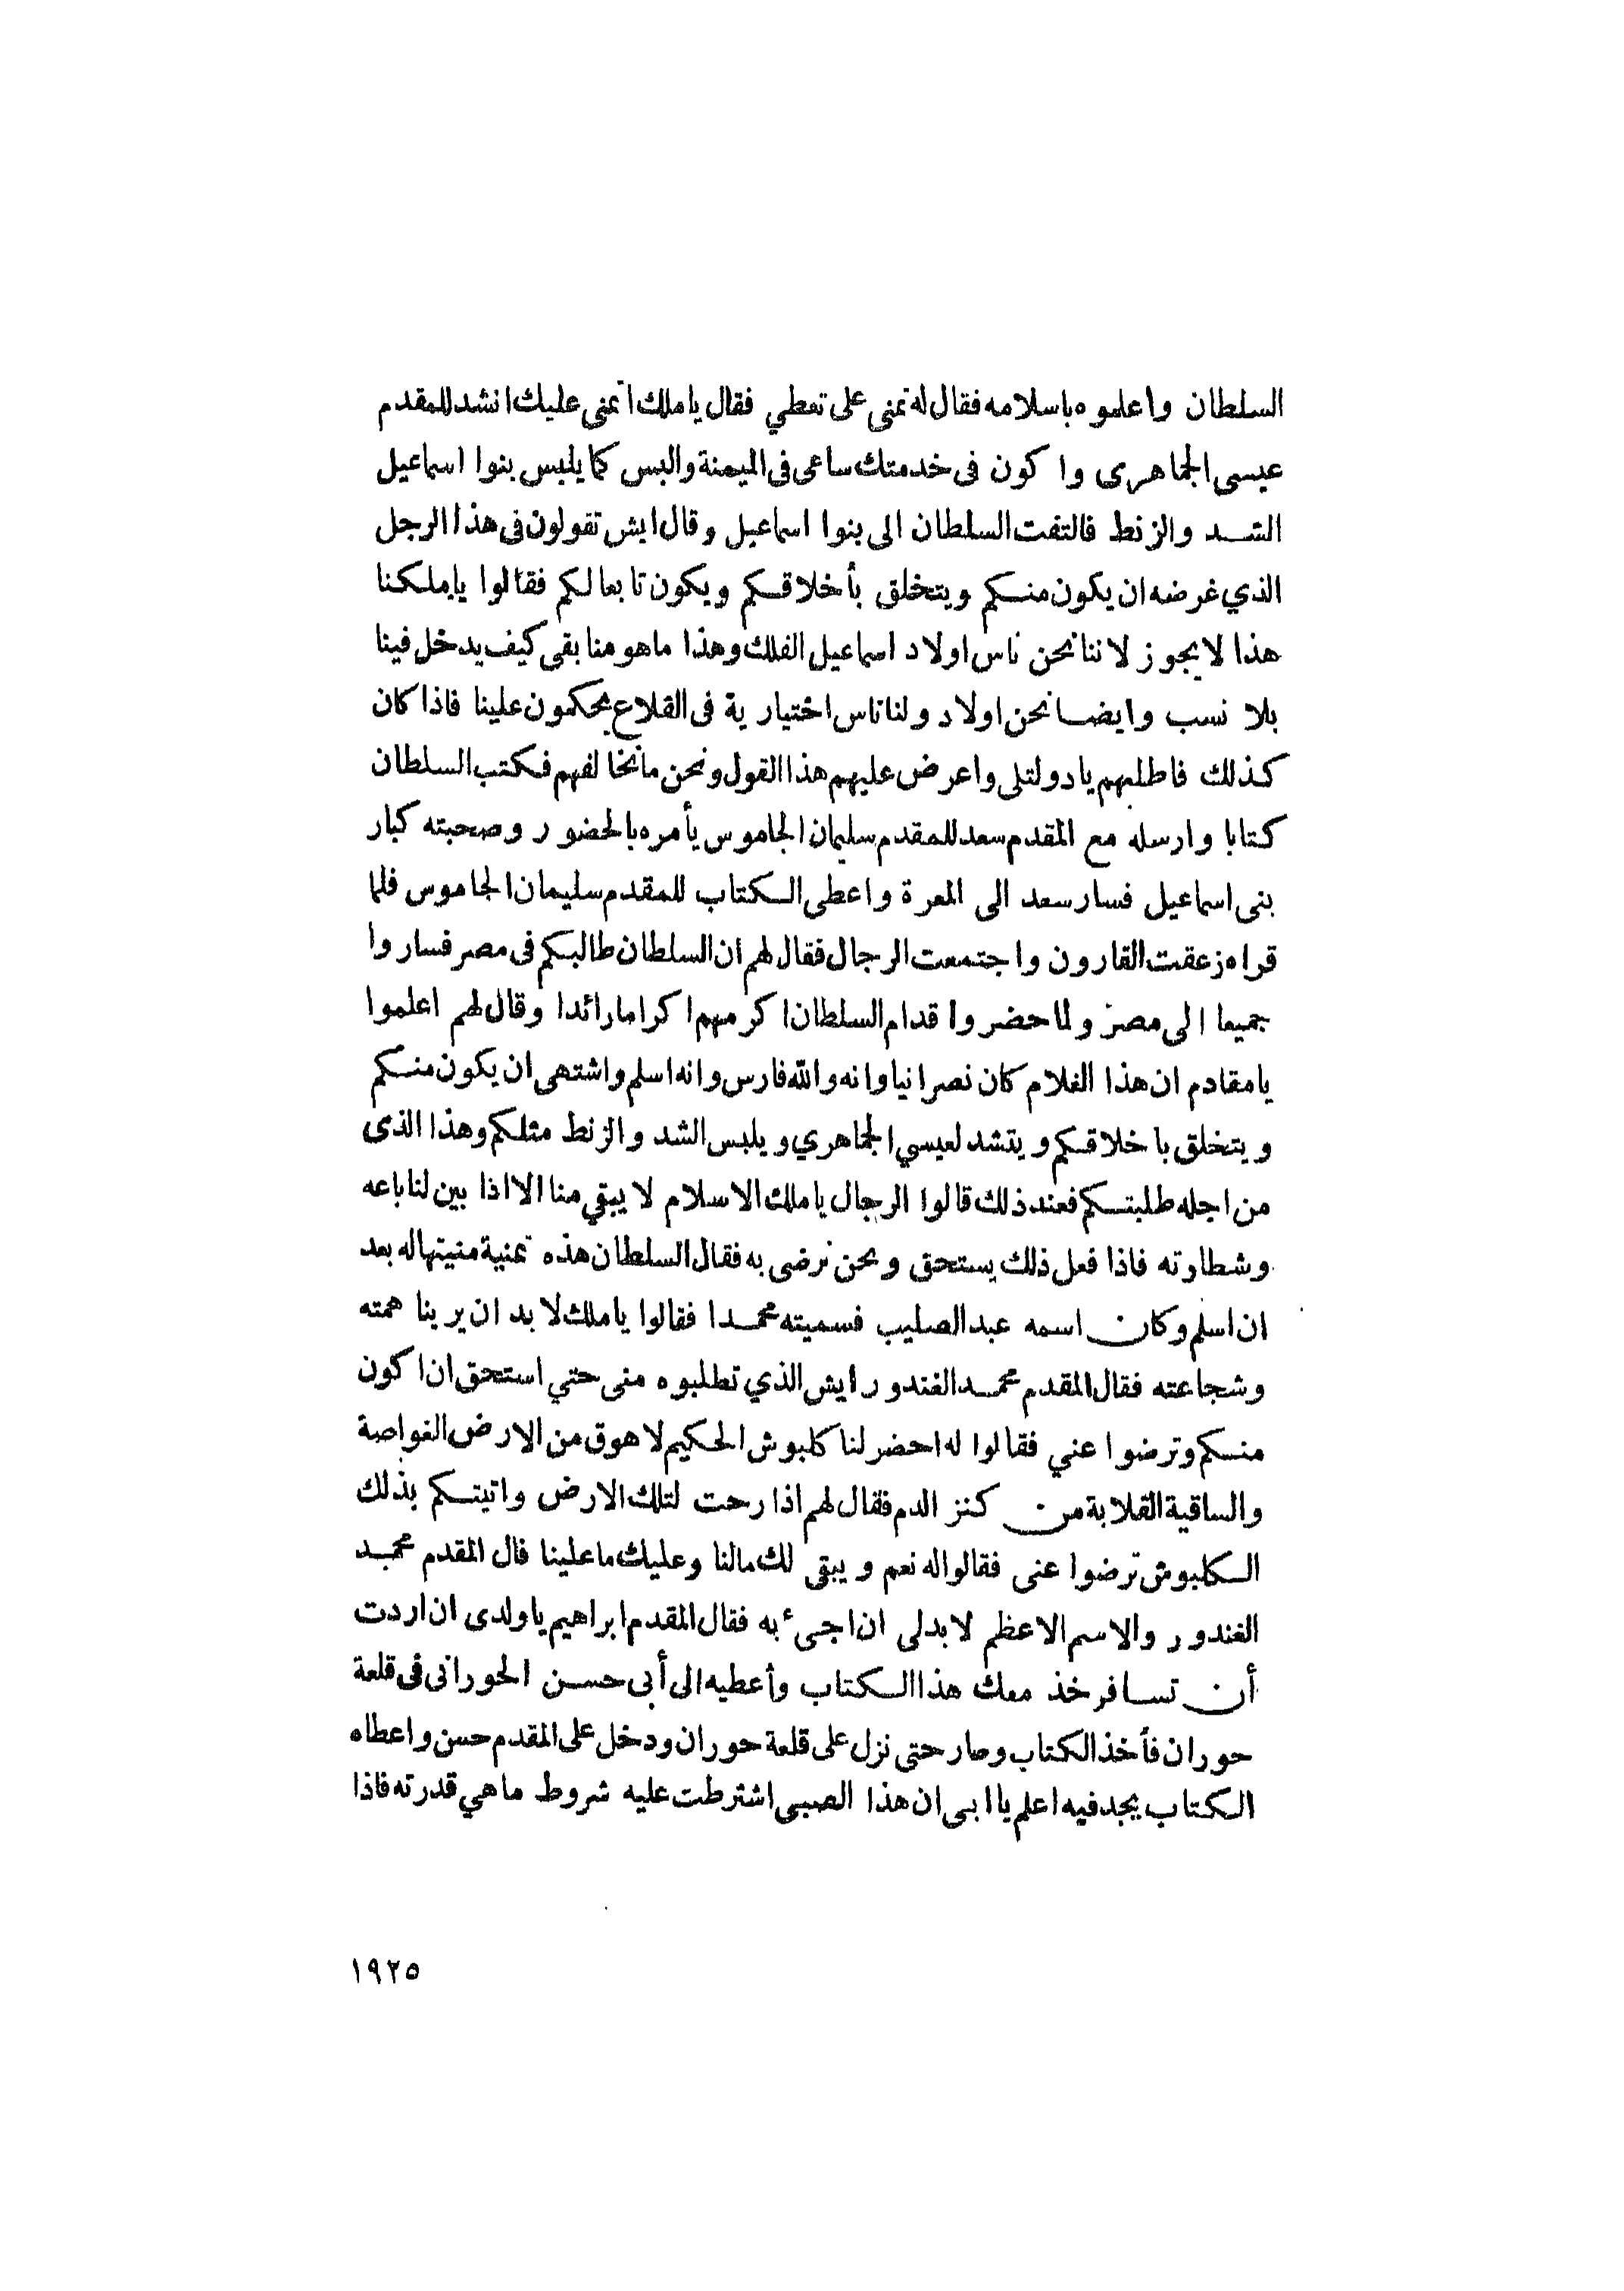 السلطان واعلموه باسلامه فقال له تمنى على تعطي فقال ياملك أتمنى عليك انشد للمقدم
عيسى الجماهرى واكون فى خدمتك ساعى فى الميمنة والبس كما يلبس بنوا اسماعيل
الشد والزنط فالتفت السلطان الى بنوا اسماعيل وقال ايش تقولون فى هذا الرجل
الذي غرضه ان يكون منكم ويتخلق بأخلاقكم ويكون تابعا لكم فقالوا ياملكنا
هذا لايجوز لاننا نحن ناس اولاد اسماعيل الفلك وهذا ماهو منا بقى كيف يدخل فينا
بلا نسب وايضا نحن اولاد ولنا ناس اختيارية فى القلاع يحكمون علينا فاذا كان
كذلك فاطلبهم يادولتلى واعرض عليهم هذا القول ونحن مانخالفهم فكتب السلطان
كتابا وارسله مع المقدم سعد للمقدم سليمان الجاموس يأمره بالحضور وصحبته كبار
بنى اسماعيل فسار سعد الى المعرة واعطى الكتاب للمقدم سليمان الجاموس فلما
قراه زعقت القارون واجتمعت الرجال فقال لهم ان السلطان طالبكم فى مصر فساروا
جميعا الى مصر ولما حضروا قدام السلطان اكرمهم اكراما رائدا وقال لهم اعلموا
يامقادم ان هذا الغلام كان نصرانيا وانه والله فارس وانه اسلم واشتهى ان يكون منكم
ويتخلق باخلاقكم ويتشد لعيسي الجماهري ويلبس الشد والزنط مثلكم وهذا الذى
من اجله طلبتكم فعند ذلك قالوا الرجال ياملك الاسلام لا يبقي منا الا اذا بين لنا باعه
وشطارته فاذا فعل ذلك يستحق ونحن نرضى به فقال السلطان هذه تمنية منيتها له بعد
ان اسلم وكان اسمه عبد الصليب فسميته محمدا فقالوا ياملك لابد ان يرينا همته
وشجاعته فقال المقدم محمد الغندور أيش الذي تطلبوه منى حتي استحق ان اكون
منكم وترضوا عني فقالوا له احضر لنا كلبوش الحكيم لاهوق من الارض الغواصة
والساقية القلابة من كنز الدم فقال لهم اذا رحت لتلك الارض واتيتكم بذلك
الكلبوش ترضوا عنى فقالوا له نعم ويبقى لك مالنا وعليك ماعلينا قال المقدم محمد
الغندور والاسم الاعظم لابدلى ان اجىء به فقال المقدم ابراهيم ياولدى ان اردت
أن تسافر خذ معك هذا الكتاب وأعطيه الى أبى حسن الحورانى فى قلعة
حوران فأخذ الكتاب وصار حتى نزل على قلعة حوران ودخل على المقدم حسن واعطاه
الكتاب يجد فيه اعلم ياابى ان هذا الصبى اشترطت عليه شروط ماهي قدرته فاذا
١٩٢٥